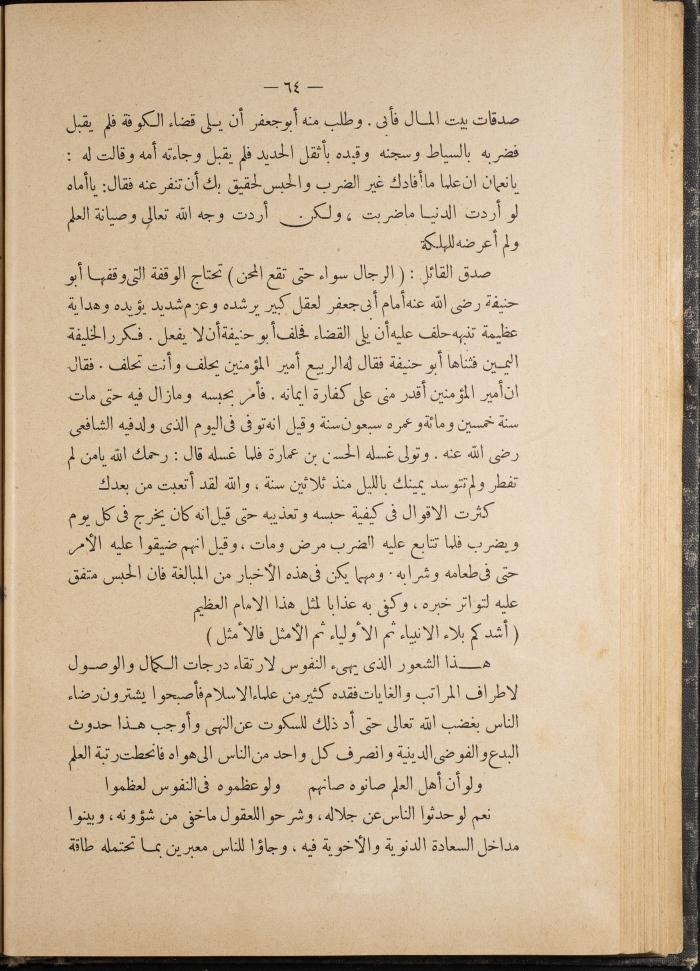 — ٦٤ —
صدقات بيت المـال فأبى . وطلب منه أبوجعفر أن يـلى قضاء الكوفة فلم يقبل
فضربه بالسياط وسجنه وقيده بأثقل الحديد فلم يقبل وجاءته أمه وقالت له :
يانعمان ان علما ماأفادك غير الضرب والحبس لحقيق بك أن تنفر عنه فقال: ياأماه
لو أردت الدنيـا ماضربت ، ولكن أردت وجه الله تعالى وصيانة العلم
ولم أعرضه للهلكة
صدق القائل : ( الرجال سواء حتى تقع المحن ) تحتاج الوقفة التى وقفهـا أبو
حنيفة رضى الله عنه أمام أبى جعفر لعقل كبير يرشده وعزم شديد يؤيده وهداية
عظيمة تنبهه حلف عليه أن يلى القضاء فحلف أبو حنيفة أن لا يفعل . فكرر الخليفة
اليمـين فثناها أبو حنيفة فقال له الربيع أمير المؤمنين يحلف وأنت تحلف . فقال
ان أمير المؤمنين أقدر منى على كفارة ايمانه . فأمر بحبسه ومازال فيه حتى مات
سنة خمسين ومائة وعمره سبعون سنة وقيل انه توفى فى اليوم الذى ولد فيه الشافعى
رضى الله عنه . وتولى غسله الحسن بن عمارة فلما غسله قال : رحمك الله يامن لم
تفطر ولم تتوسد يمينك بالليل منذ ثلاثين سنة ، والله لقد أتعبت من بعدك
كثرت الاقوال فى كيفية حبسه وتعذيبه حتى قيل انه كان يخرج فى كل يوم
ويضرب فلما تتابع عليه الضرب مرض ومات ، وقيل انهم ضيقوا عليه الأمر
حتى فى طعامه وشرابه . ومهما يكن فى هذه الأخبار من المبالغة فان الحبس متفق
عليه لتواتر خبره ، وكفى به عذابا لمثل هذا الامام العظيم
( أشدكم بلاء الانبياء ثم الأولياء ثم الأمثل فالأمثل )
هـذا الشعور الذى يهىء النفوس لارتقاء درجات الـكمال والوصـول
لاطراف المراتب والغايات فقده كثير من علماء الاسلام فأصبحوا يشترون رضاء
الناس بغضب الله تعالى حتى أد ذلك للسكوت عن النهى وأوجب هـذا حدوث
البدع والفوضى الدينية وانصرف كل واحد من الناس الى هواه فانحطت رتبة العلم
ولو أن أهل العلم صانوه صانهم ولو عظموه فى النفوس لعظموا
نعم لو حدثوا الناس عن جلاله، وشرحوا للعقول ماخفى من شؤونه ، وبينوا
مداخل السعادة الدنوية والأخوية فيه ، وجاؤا للناس معبرين بمـا تحتمله طاقة